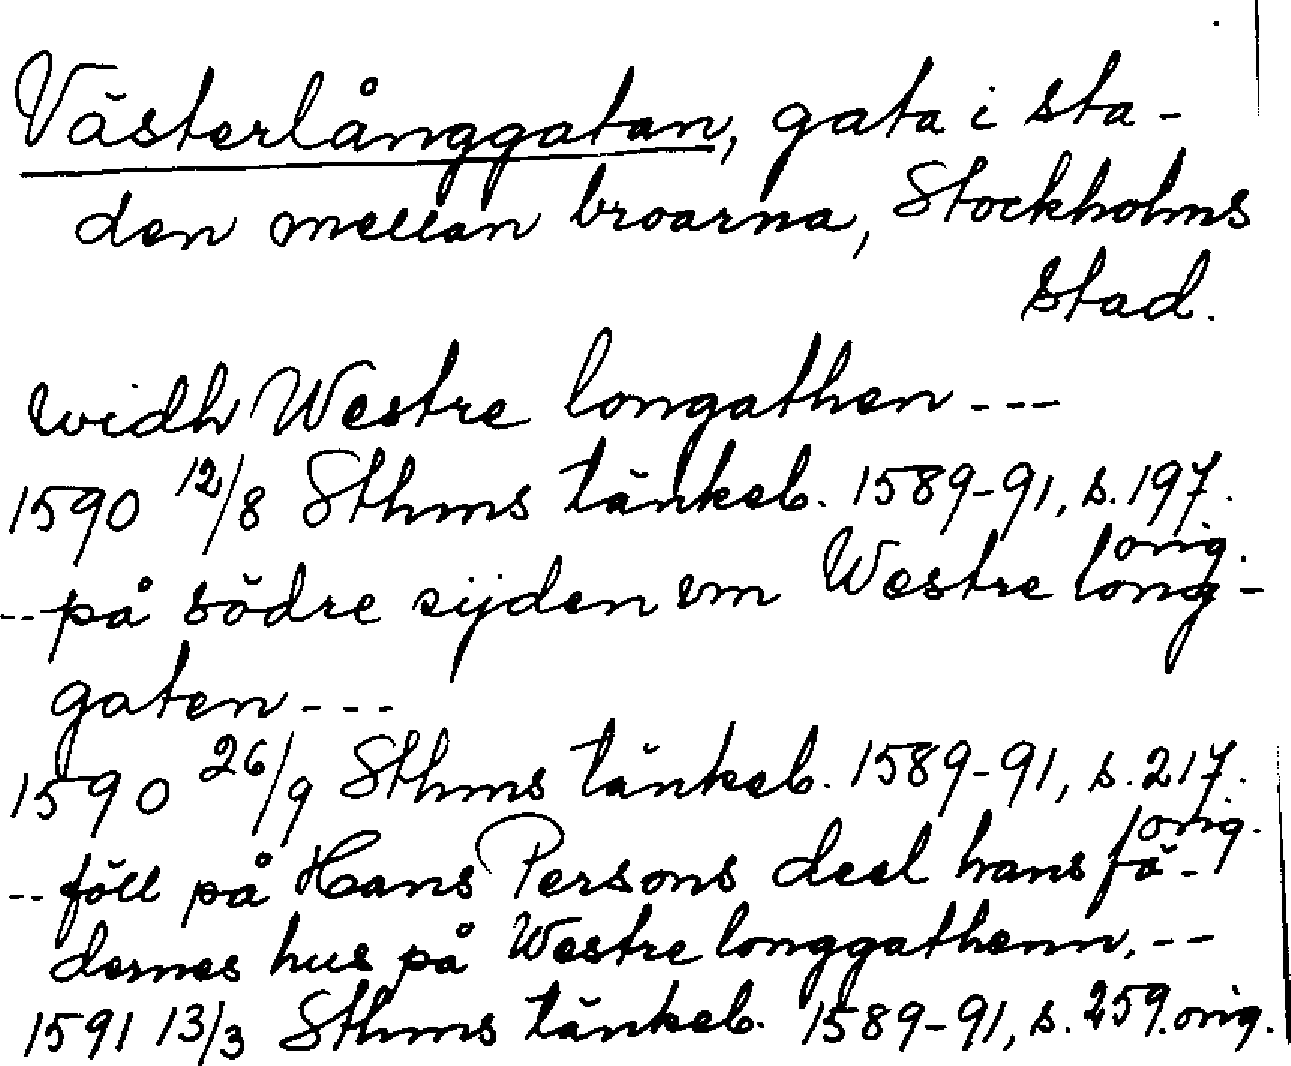 Västerlånggatan, gata i sta-
den mellan broarna, Stockholms
stad.
widh Westre longathen ---
1590 12/8 Sthms tänkeb. 1589-91, s. 197.
orig.
-- på södre sijden om Westre long-
gaten ---
1590 26/9 Sthms tänkeb. 1589-91, s. 217.
orig.
-- föll på Hans Persons deel hans fä-
dernes hus på Westre longgathenn. --
1591 13/3 Sthms tänkeb. 1589-91, s. 259. orig.